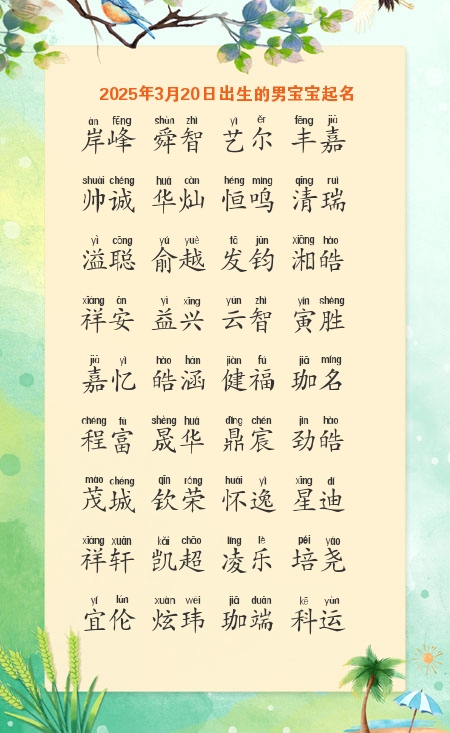 2025年3月20日出生的男宝宝起名
àn fēng shùn zhì yì ěr fēng jiā
岸峰 舜智 艺尔 丰嘉
shuài chéng huá càn héng míng qīng ruì
帅诚 华灿 恒鸣 清瑞
yì cōng yú yuè fā jūn xiāng hào
溢聪 俞越 发钧 湘皓
xiáng ān yì xīng yún zhì yín shèng
祥安 益兴 云智 寅胜
jiā yì hào hán jiàn fú jiā míng
嘉忆 皓涵 健福 珈名
chéng fù shèng huá dǐng chén jìn hào
程富 晟华 鼎宸 劲皓
mào chéng qīn róng huái yì xīng dí
茂城 钦荣 怀逸 星迪
xiáng xuān kǎi chāo líng lè péi yáo
祥轩 凯超 凌乐 培尧
yí lún xuàn wěi jiā duān kē yùn
宜伦 炫玮 珈端 科运